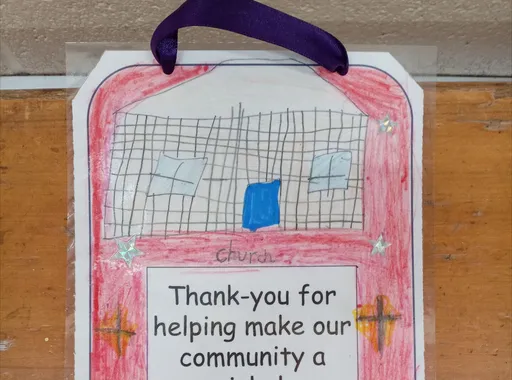 Church
Thank-you for
helping make our
community a